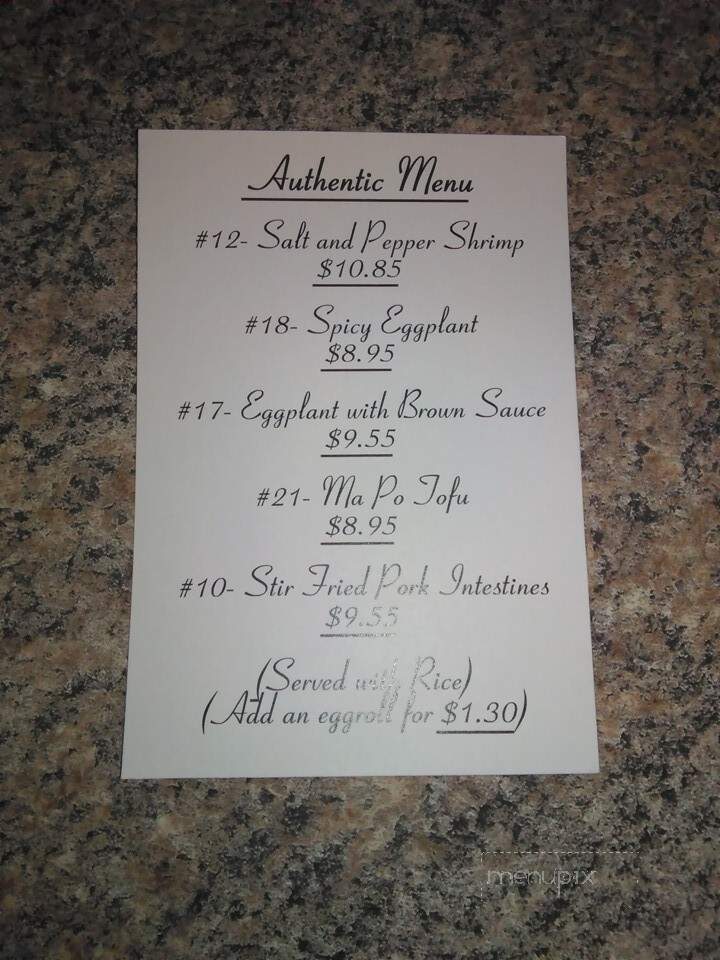 Authentic Menu
#12- Salt and Pepper Shrimp
$10.85
#18- Spicy Eggplant
$8.95
#17- Eggplant with Brown Sauce
$9.55
#21- Ma Po Tofu
$8.95
#10- Stir Fried Pork Intestines
$9.55
(Served with Rice)
(Add an eggroll for $1.30)
menupix